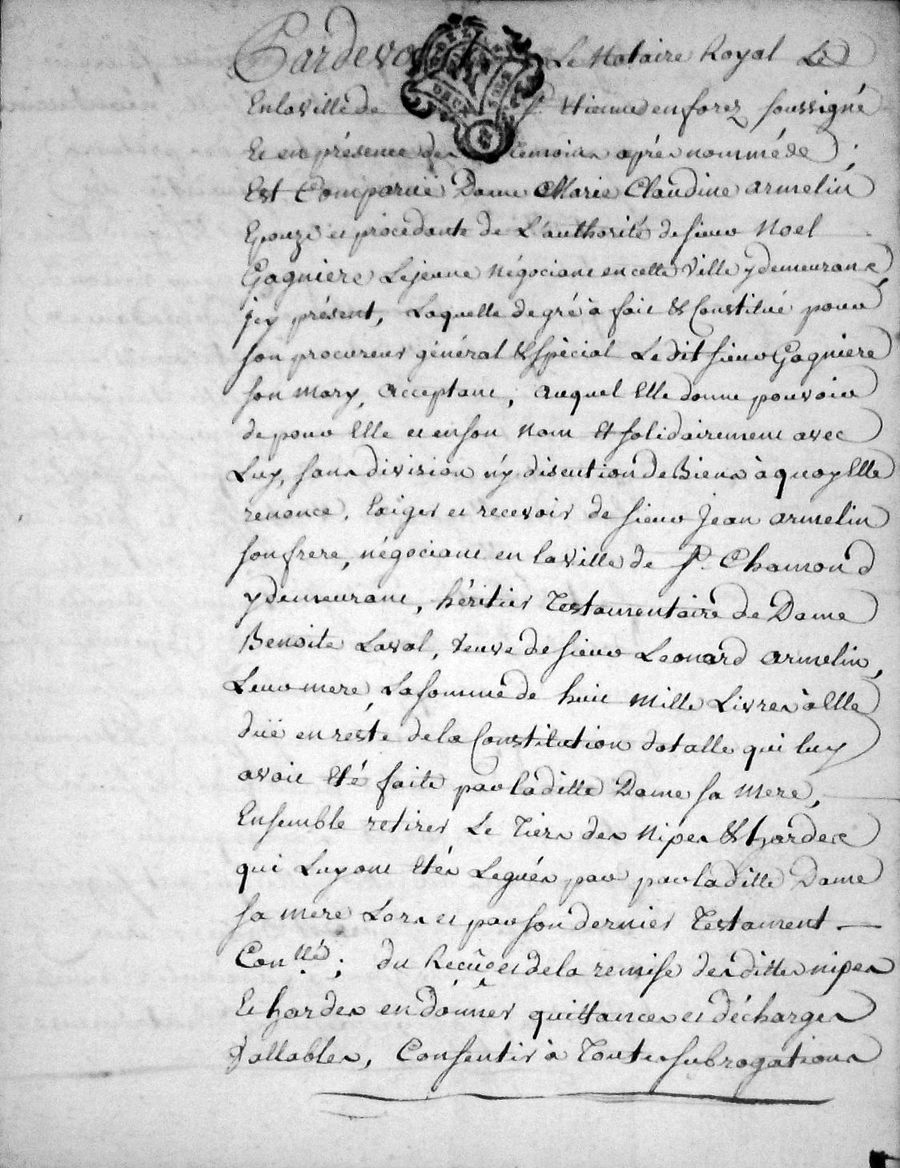 Pardevant Le Notaire Royal
En la ville de St. Etienne en forez soussigné
Et en présence des Temoins après nommé de
Est Comparue Dame Marie Claudine armelin
Epouze et procédante de L'authorité de sieur Noel
Gagniere Lejeune négociant en cette ville y demeurant,
jcy présent, Laquelle de gré à fait & Constitué pour
son procureur général & spécial Ledit sieur Gagniere
son mary, acceptant, auquel Elle donne pouvoir
de pour Elle et en son nom & solidairement avec
Luy, sans division n'y discution de Biens à quoy Elle
renonce, Exiger et recevoir de sieur Jean armelin
son frere, négociant en la ville de St. Chamond
y demeurant, héritier Testamentaire de Dame
Benoite Laval, veuve de sieur Leonard armelin,
Leur mere, La somme de huit mille Livres à Elle
düe en reste de la Constitution dotalle qui luy
avoit Eté faite par laditte Dame sa mere,
Ensemble retirer Le Tiers des nipes & hardes
qui Luy ont Etés Legués par par laditte Dame
sa mere Lors et par son dernier Testament
Con.llé; du Reçu et de la remise desdittes nipes
Et hardes en donner quittances et décharges
vallables, Consentir à Toutes subrogations